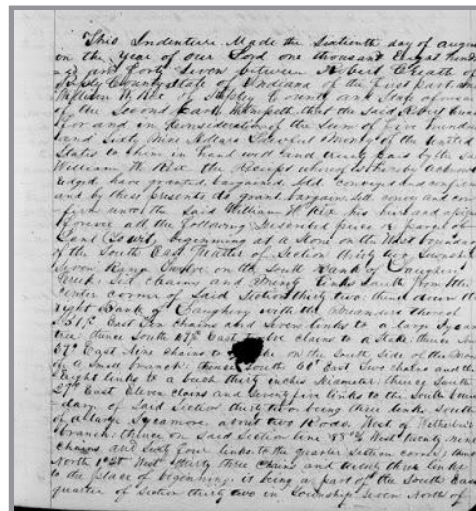 This Indenture Made the Sixteenth day of
in the Year of our Lord one thousand Eight
and Forty Seven between Robert
County State of Indiana of the first part and
William H of Ripley County and State
of the Second part Witnesseth that the said Robert
for and in Consideration of the Sum of five
and Sixty Nine Dollars Lawful Money of the United
States to him in hand well and truly paid by the
William H the Receipt whereof is hereby
have granted bargained Sold conveyed and
and by these presents do grant bargain, Sell convey and
firm unto the Said William H his heirs and
forever all the following described piece or parcel of
Land Towit, beginning at a Stone on the West
of the South East Quarter of Section thirty two Township
Seven Range Twelve on the South Bank of Laughery
Creek, Six chains and Ninety links South from the
Center corner of Said Section thirty two; thence down the
right Bank of Laughery with the Meanders thereof
East Ten chains and Seven links to a large
tree; thence South 47° East chains to a Stake; thence
57° East Nine chains to on the South Side of the
of a Small branch; thence South East Two chains and
Eight links to a beech thirty inches Diameter; thence South
29° East Eleven chains and Seventy five links to the South
of Said Section thirty two being three links South
of a large Sycamore about two Rods West of
branch; thence on Said Section line 88° West twenty Nine
chains and Sixty four links to the quarter Section corner; thence
North 1° West thirty three chains and links
to the place of beginning, it being a part of the South East
quarter of Section thirty two in Township Seven North of